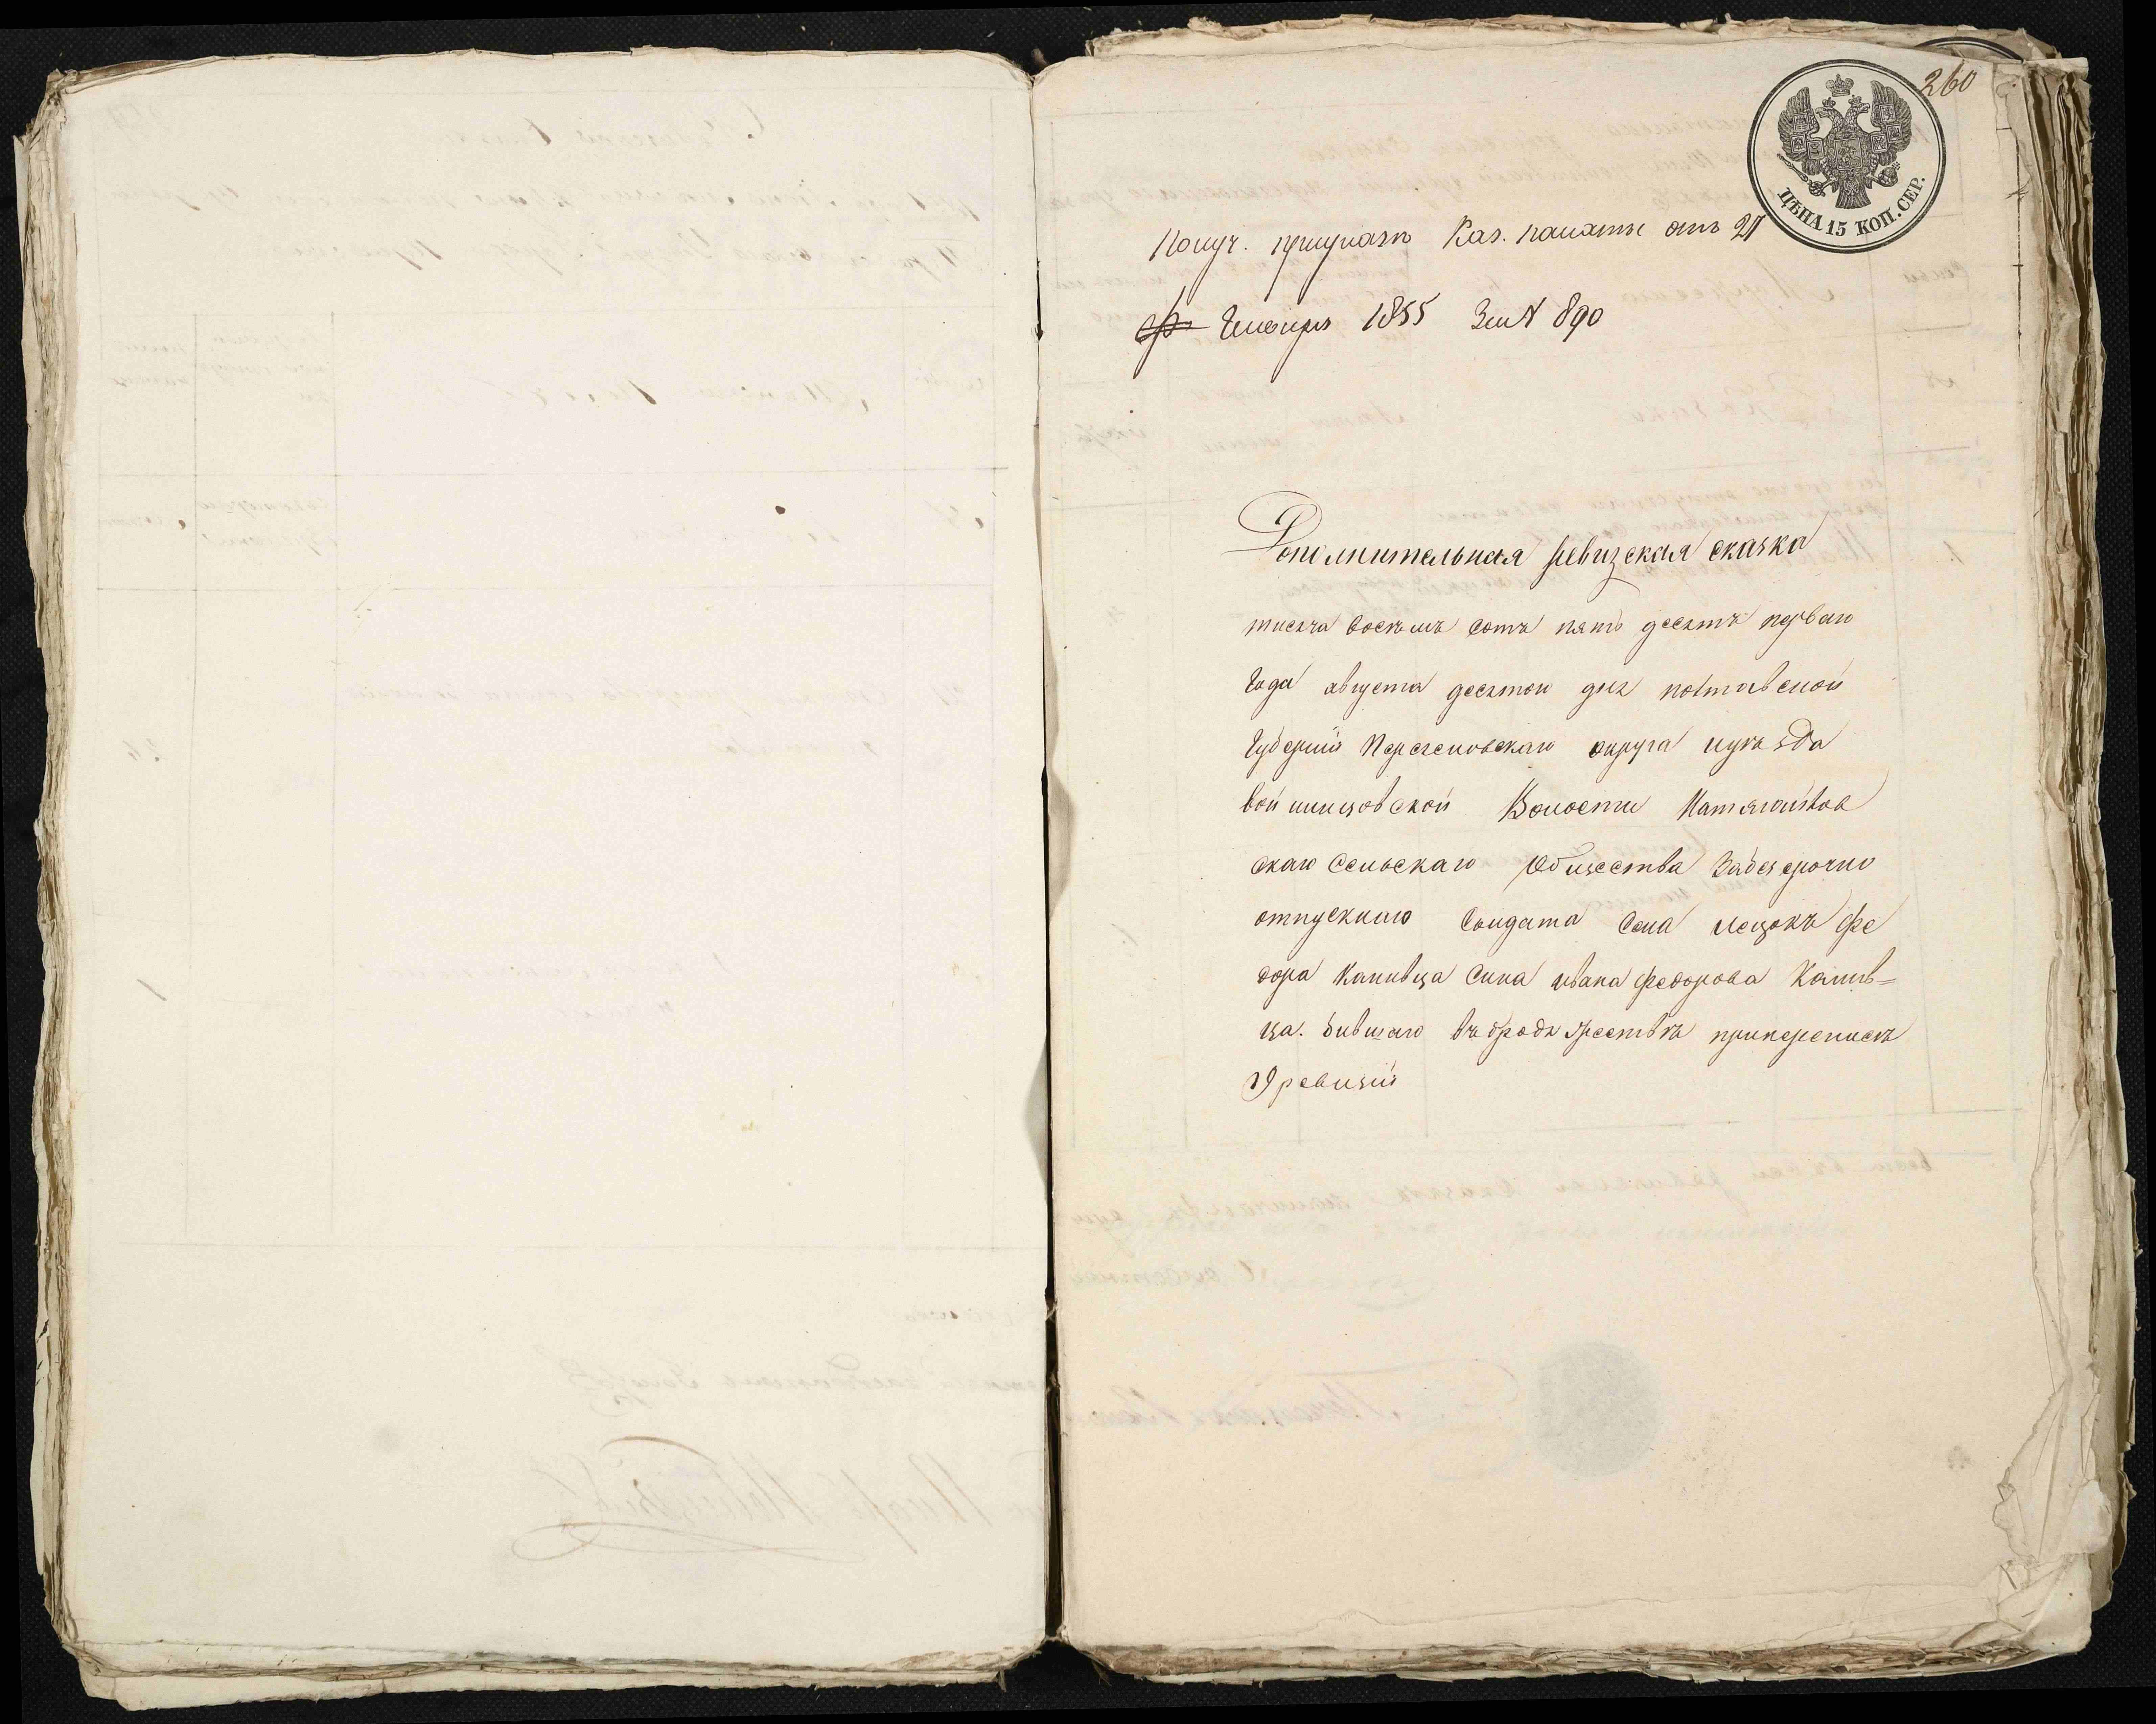 260
ЦѢНА 15 КОП. СЕР.
Получ. приуказѣ Каз. палаты отъ 27
Генваря 1855 За № 890
Дополнительная ревизская сказка
тисяча восѣмъ сотъ пять десятъ первого
Года августа десятого дня полтавской
Губернии Переяславскаго округа иуѣзда
войтовской Волости
скаго Селскаго Общества Забезсрочно
отпускного Солдата Села Лецокъ Фе
дора Канивца Сина ивана федорова Канив=
ца. бившаго въ бродяжествѣ приперепись
9 ревизии